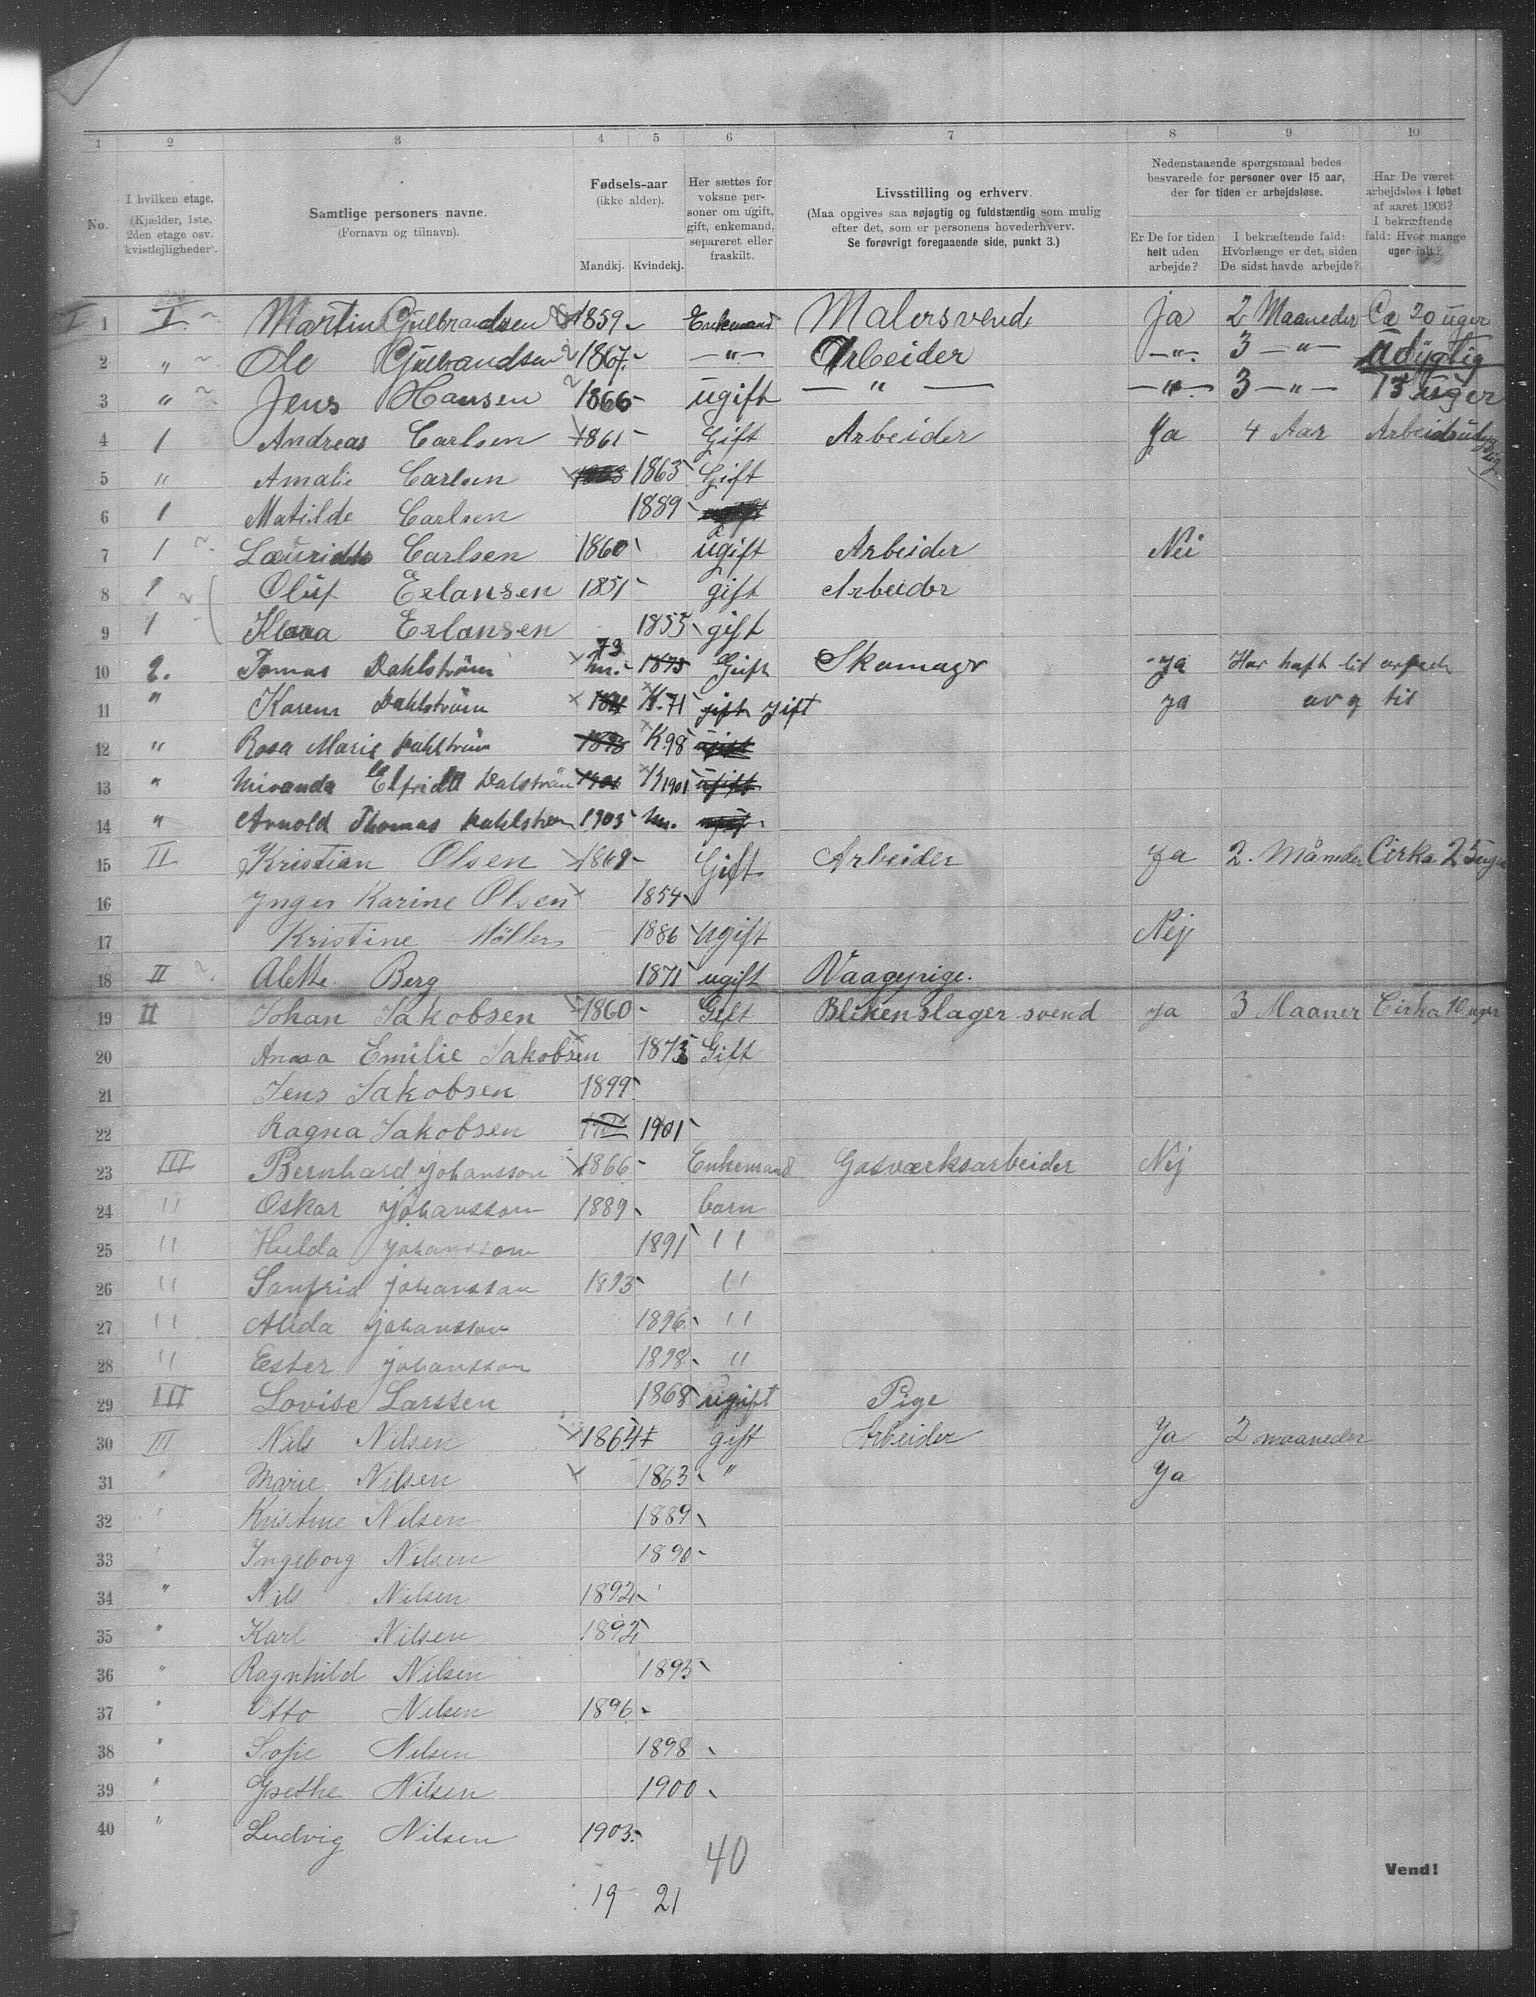 1 2 3 4 5 6 7 8 9 10
No.
I hvilken etage.
(Kjælder, 1ste,
2den etage osv.
kvistleiligheder).
Samtlige personers navne.
(Fornavn og tilnavn).
Fødsels-aar
(ikke alder).
Mandkj. Kvindekj.
Her sættes for
voksne per-
soner om ugift,
gift, enkemand,
separeret eller
fraskilt.
Livsstilling og erhverv.
(Maa opgives saa nøjagtig og fuldstændig som mulig
efter det, som er personens hovederhverv.
Se forøvrigt foregaaende side, punkt 3.)
Nedenstaaende spørgsmaal bedes
besvarede for personer over 15 aar,
der for tiden er arbejdsløse.
Er De for tiden
helt uden
arbejde?
I bekræftende fald:
Hvorlænge er det, siden
De sidst havde arbejde?
Har De været
arbejdsløs i løbet
af aaret 1903?
I bekræftende
fald: Hvor mange
uger ialt?
I 1 I. Martin Gulbrandsen 1859 Enkemand Malersvend Ja 2 Maaneder Ca 20 uger
2 " Ole Gulbrandsen 1867 —"— Arbeider —"— 3 —"— Udygtig
3 " Jens Hansen 1866 ugift —"— —"— 3 —"— 13 uger
4 1 Andreas Carlsen 1861 Gift Arbeider Ja 4 Aar Arbeidsudygtig
5 " Amalie Carlsen 1863 Gift
6 1 Matilde Carlsen 1889
7 1 Lauridts Carlsen 1860 ugift Arbeider Nei
8 1 Oluf Erlansen 1851 gift Arbeider
9 1 Klara Erlansen 1855 gift
10 2. Tomas Dahlström m. 73 1873 Gift Skomagr ja Har haft lit arbeide
11 " Karen Dahlström K. 71 gift gift ja av og til
12 " Rosa Marie Dahlström 1898 K 98 ugift
13 " Miranda Elfride Dalström 1901 K 1901 ugift
14 " Arnold Thomas Dahlström 1903 m.
15 II Kristian Olsen 1869 Gift Arbeider Ja 2. Måneder Cirka 25 uger
16 Ynger Karine Olsen 1854
17 Kristine Möller 1886 Ugift Nej
18 II Alette Berg 1871 ugift Vaagepige.
19 II Johan Jakobsen 1860 Gift Blikenslager svend ja 3 Maaner Cirka 10 uger
20 Anna Emilie Jakobsen 1873 Gift
21 Jens Jakobsen 1899
22 Ragna Jakobsen 1901 1901
23 III Bernhard Johansson 1866 Enkemand Gasværksarbeider Nej
24 " Oskar Johansson 1889 barn
25 " Hulda Johansson 1891 "
26 " Sanfrid Johansson 1893 "
27 " Alida Johansson 1896 "
28 " Ester Johansson 1898 "
29 III Lovise Larssen 1868 ugift Pige
30 III Nils Nilsen 1864 gift Arbeider Ja 2 maaneder
31 " Marie Nilsen 1863 " Ja
32 " Kristine Nilsen 1889
33 " Ingeborg Nilsen 1890
34 " Nils Nilsen 1892
35 " Karl Nilsen 1892
36 " Ragnhild Nilsen 1895
37 " Otto Nilsen 1896
38 " Sofie Nilsen 1898
39 " Grethe Nilsen 1900
40 " Ludvig Nilsen 1903
40
Vend!
19 21